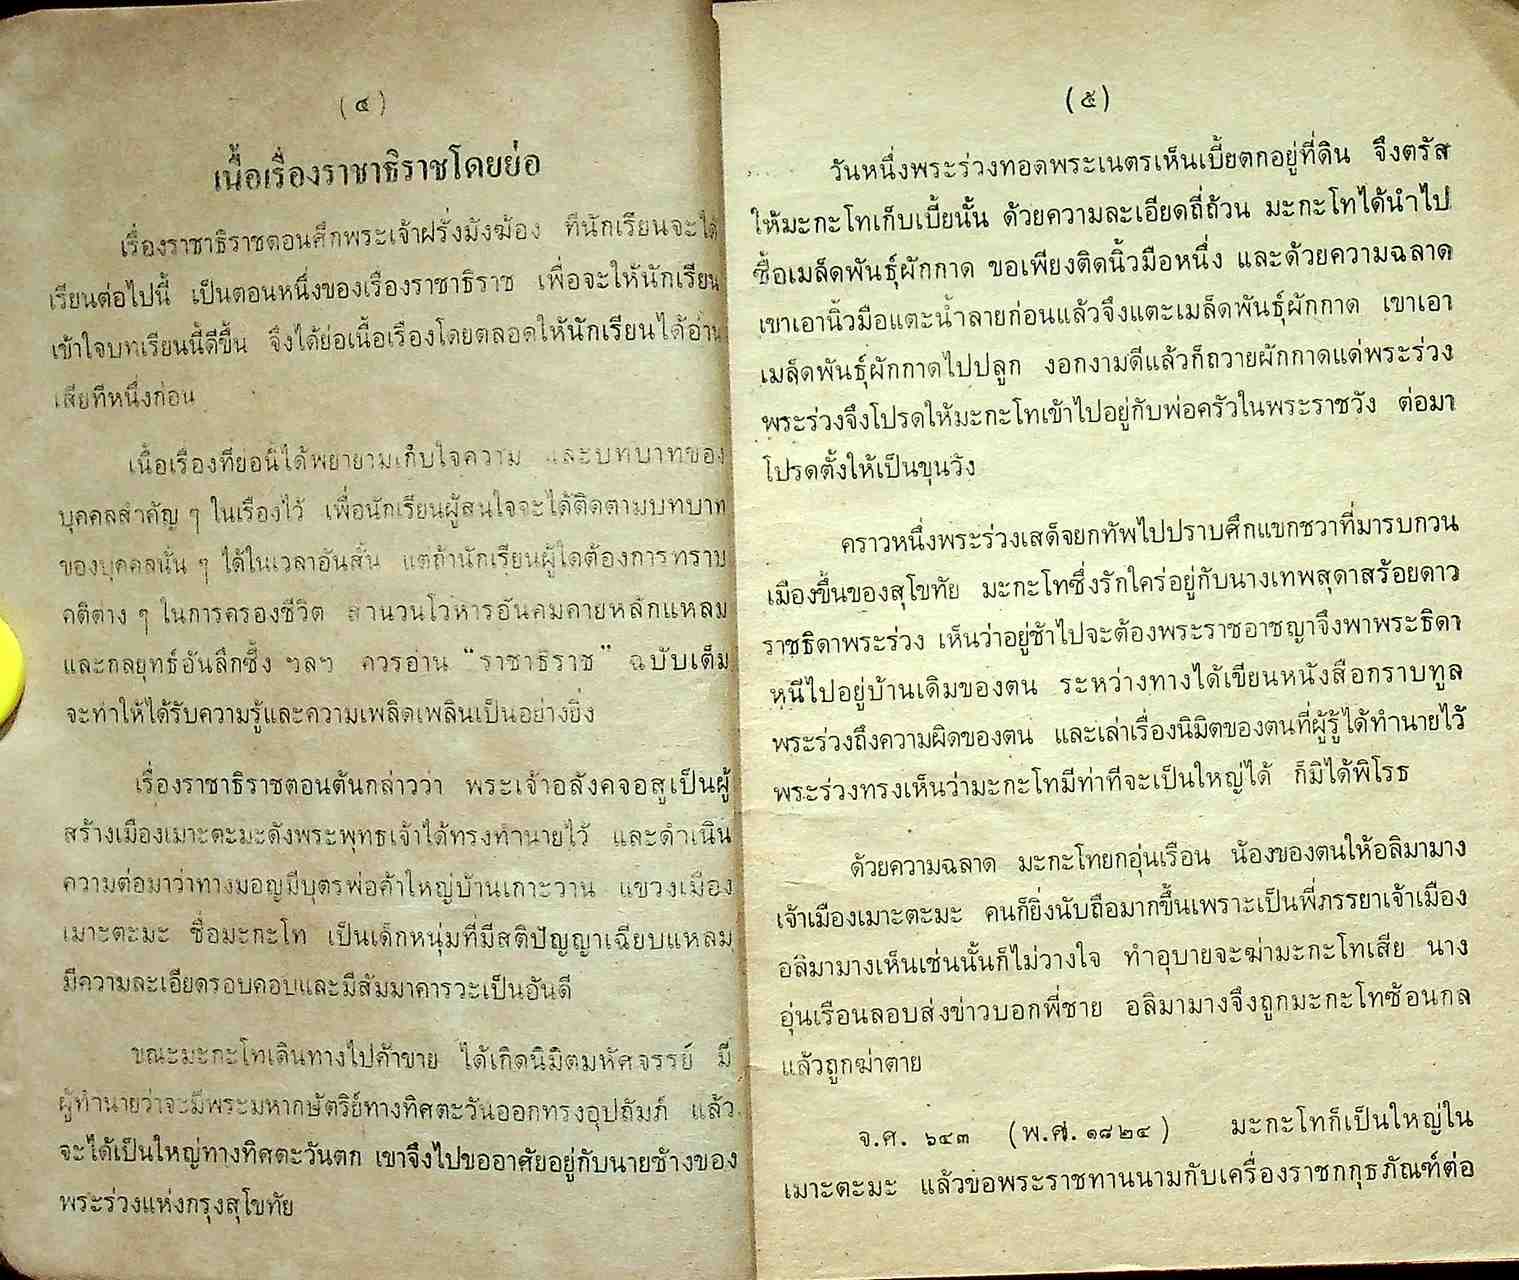 (๔)
เนื้อเรื่องราชาธิราชโดยย่อ
เรื่องราชาธิราชตอนศึกพระเจ้าฝรั่งมังฆ้อง ที่นักเรียนจะได้
เรียนต่อไปนี้ เป็นตอนหนึ่งของเรื่องราชาธิราช เพื่อจะให้นักเรียน
เข้าใจบทเรียนนี้ดีขึ้น จึงได้ย่อเนื้อเรื่องโดยตลอดให้นักเรียนได้อ่าน
เสียทีหนึ่งก่อน
เนื้อเรื่องที่ย่อนี้ได้พยายามเก็บใจความ และบทบาทของ
บุคคลสำคัญ ๆ ในเรื่องไว้ เพื่อนักเรียนผู้สนใจจะได้ติดตามบทบาท
ของบุคคลนั้น ๆ ได้ในเวลาอันสั้น แต่ถ้านักเรียนผู้ใดต้องการทราบ
คติต่าง ๆ ในการครองชีวิต สำนวนโวหารอันคมคายหลักแหลม
และกลยุทธ์อันลึกซึ้ง ฯลฯ ควรอ่าน “ราชาธิราช” ฉบับเต็ม
จะทำให้ได้รับความรู้และความเพลิดเพลินเป็นอย่างยิ่ง
เรื่องราชาธิราชตอนต้นกล่าวว่า พระเจ้าอลังคจอสูเป็นผู้
สร้างเมืองเมาะตะมะดังพระพุทธเจ้าได้ทรงทำนายไว้ และดำเนิน
ความต่อมาว่าทางมอญมีบุตรพ่อค้าใหญ่บ้านเกาะวาน แขวงเมือง
เมาะตะมะ ชื่อมะกะโท เป็นเด็กหนุ่มที่มีสติปัญญาเฉียบแหลม
มีความละเอียดรอบคอบและมีสัมมาคารวะเป็นอันดี
ขณะมะกะโทเดินทางไปค้าขาย ได้เกิดนิมิตมหัศจรรย์ มี
ผู้ทำนายว่าจะมีพระมหากษัตริย์ทางทิศตะวันออกทรงอุปถัมภ์ แล้ว
จะได้เป็นใหญ่ทางทิศตะวันตก เขาจึงไปขออาศัยอยู่กับนายช้างของ
พระร่วงแห่งกรุงสุโขทัย
(๕)
วันหนึ่งพระร่วงทอดพระเนตรเห็นเบี้ยตกอยู่ที่ดิน จึงตรัส
ให้มะกะโทเก็บเบี้ยนั้น ด้วยความละเอียดถี่ถ้วน มะกะโทได้นำไป
ซื้อเมล็ดพันธุ์ผักกาด ขอเพียงติดนิ้วมือหนึ่ง และด้วยความฉลาด
เขาเอานิ้วมือแตะน้ำลายก่อนแล้วจึงแตะเมล็ดพันธุ์ผักกาด เขาเอา
เมล็ดพันธุ์ผักกาดไปปลูก งอกงามดีแล้วก็ถวายผักกาดแด่พระร่วง
พระร่วงจึงโปรดให้มะกะโทเข้าไปอยู่กับพ่อครัวในพระราชวัง ต่อมา
โปรดตั้งให้เป็นขุนวัง
คราวหนึ่งพระร่วงเสด็จยกทัพไปปราบศึกแขกชวาที่มารบกวน
เมืองขึ้นของสุโขทัย มะกะโทซึ่งรักใคร่อยู่กับนางเทพสุดาสร้อยดาว
ราชธิดาพระร่วง เห็นว่าอยู่ช้าไปจะต้องพระราชอาชญาจึงพาพระธิดา
หนีไปอยู่บ้านเดิมของตน ระหว่างทางได้เขียนหนังสือกราบทูล
พระร่วงถึงความผิดของตน และเล่าเรื่องนิมิตของตนที่ผู้รู้ได้ทำนายไว้
พระร่วงทรงเห็นว่ามะกะโทมีท่าทีจะเป็นใหญ่ได้ ก็มิได้พิโรธ
ด้วยความฉลาด มะกะโทยกอุ่นเรือน น้องของตนให้อลิมามาง
เจ้าเมืองเมาะตะมะ คนก็ยิ่งนับถือมากขึ้นเพราะเป็นพี่ภรรยาเจ้าเมือง
อลิมามางเห็นเช่นนั้นก็ไม่วางใจ ทำอุบายจะฆ่ามะกะโทเสีย นาง
อุ่นเรือนลอบส่งข่าวบอกพี่ชาย อลิมามางจึงถูกมะกะโทซ้อนกล
แล้วถูกฆ่าตาย
จ.ศ. ๖๔๓ (พ.ศ. ๑๘๒๔) มะกะโทก็เป็นใหญ่ใน
เมาะตะมะ แล้วขอพระราชทานนามกับเครื่องราชกกุธภัณฑ์ต่อ